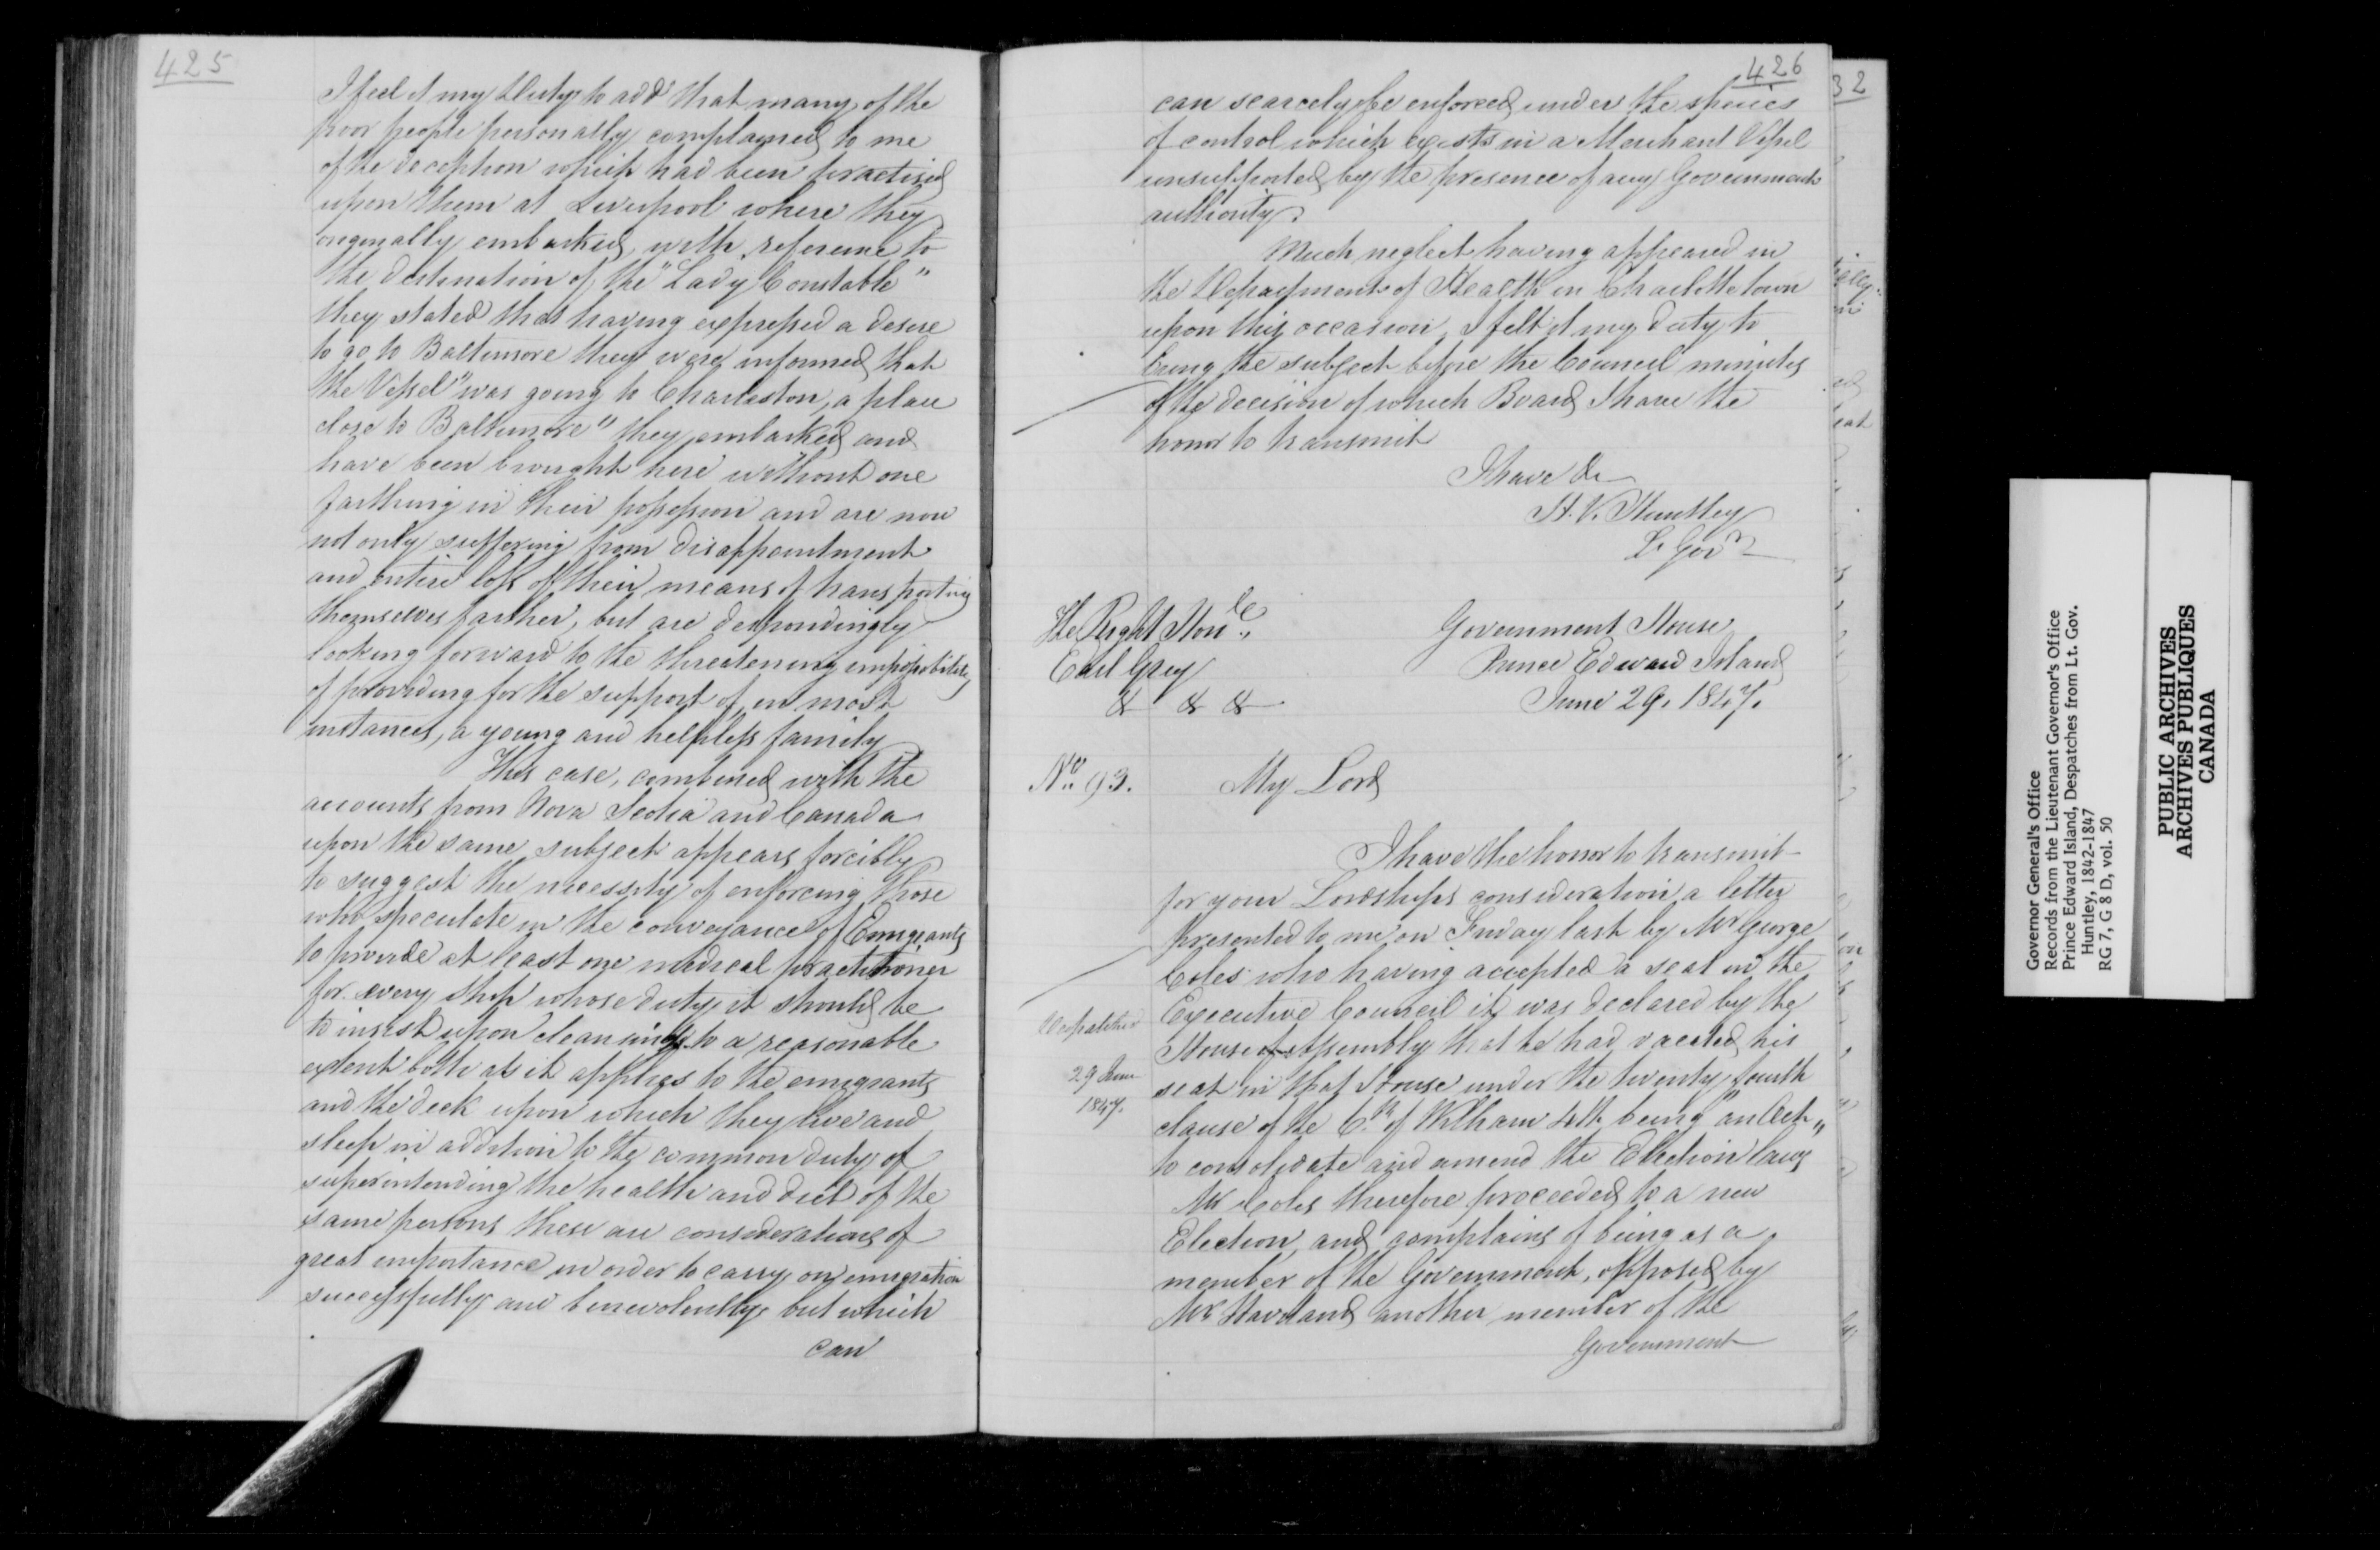 425
I feel it my Duty to add that many of the
poor people personally complained to me
of the deception which had been practised
upon them at Liverpool where they
originally embarked with reference to
the destination of the "Lady Constable"
they stated that having expressed a desire
to go to Baltimore they were informed that
the Vessel "was going to Charleston, a place
close to Baltimore" they embarked and
have been brought here without one
farthing in their possession and are now
not only suffering from disappointment
and entire loss of their means of transporting
themselves farther, but are despondingly
looking forward to the threatening impossibility
of providing for the support of, in most
instances, a young and helpless family
This case, combined with the
accounts from Nova Scotia and Canada
upon the same subject appears forcibly
to suggest the necessity of enforcing those
who speculate in the conveyance of Emigrants
to provide at least one medical practitioner
for every ship whose duty it should be
to insist upon cleanliness to a reasonable
extent both as it applies to the emigrants
and the deck upon which they live and
sleep in addition to the common duty of
superintending the health and diet of the
same persons these are considerations of
great importance in order to carry on emigration
successfully and benevolently but which
can
426
can scarcely be enforced under the species
of control which exists in a Merchant Vessel
unsupported by the presence of any Government
authority.
Much neglect having appeared in
the Department of Health in Charlottetown
upon this occasion, I felt it my duty to
bring the subject before the Council minutes
of the decision of which Board I have the
honor to transmit
I have &c
H. V. Huntley
Lt Govr
The Right Honble
Earl Grey
& & &
Government House
Prince Edward Island
June 29. 1847.
No. 93.
My Lord
I have the honor to transmit
for your Lordships consideration a letter
presented to me on Friday last by Mr George
Coles who having accepted a seat in the
Executive Council it was declared by the
House of Assembly that he had vacated his
seat in that House under the twenty fourth
clause of the 6th of William 4th being "an Act"
to consolidate and amend the Election laws
Mr Coles therefore proceeded to a new
Election and complains of being as a
member of the Government, opposed by
Mr Haviland another member of the
Government
Despatched
29 June
1847.
32
Governor General's Office
Records from the Lieutenant Governor's Office
Prince Edward Island, Despatches from Lt. Gov.
Huntley, 1842-1847
RG 7, G 8 D, vol. 50
PUBLIC ARCHIVES
ARCHIVES PUBLIQUES
CANADA